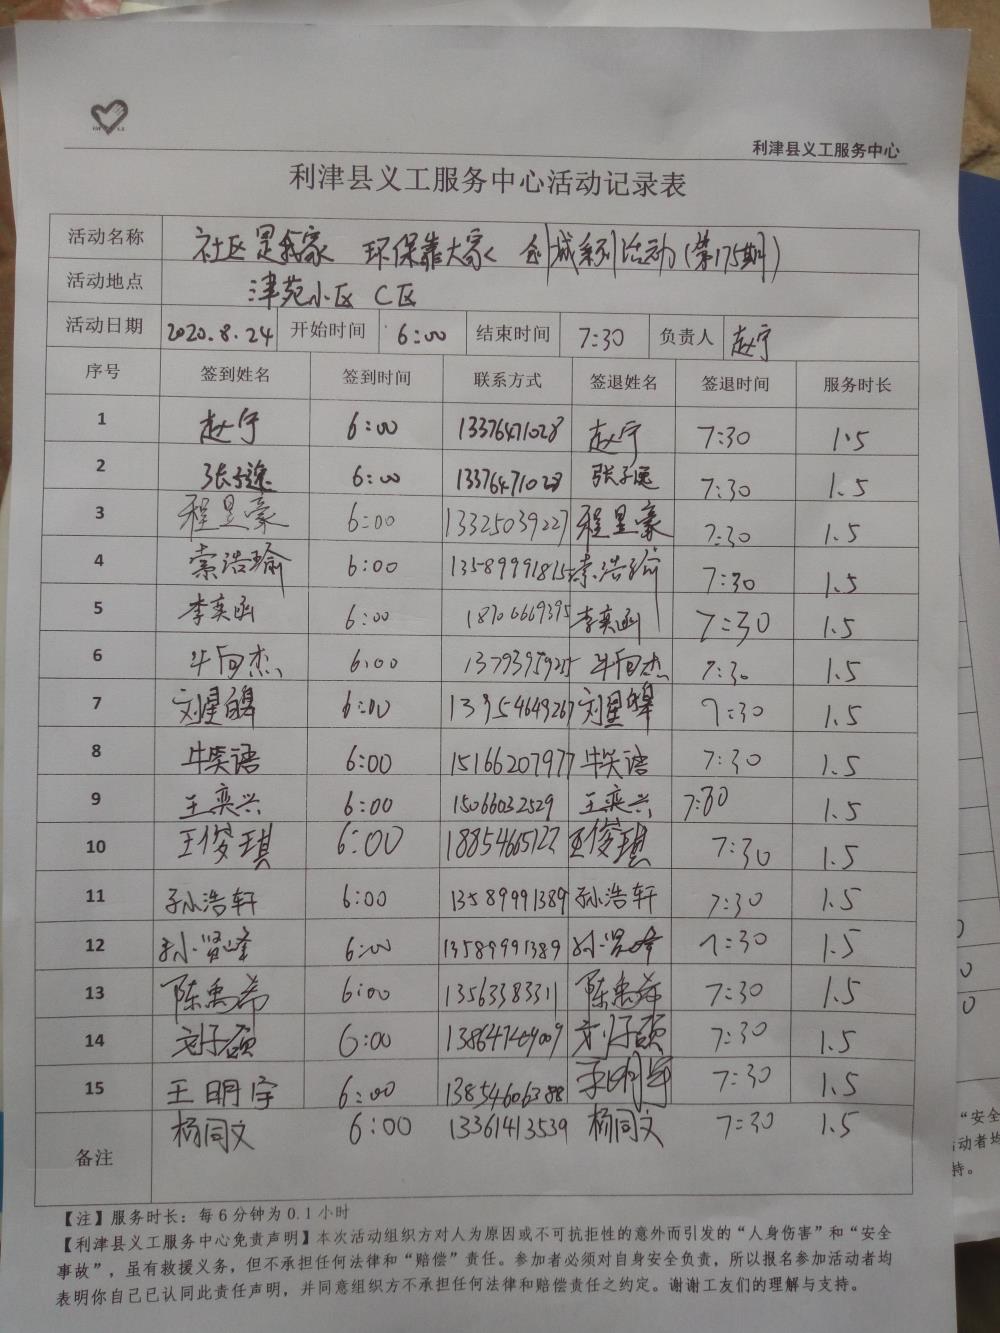 利津县义工服务中心
利津县义工服务中心活动记录表
活动名称 社区是我家 环保靠大家 创城系列活动(第175期)
活动地点 津苑小区 C区
活动日期 2020.8.24 开始时间 6:00 结束时间 7:30 负责人 赵宁
序号 签到姓名 签到时间 联系方式 签退姓名 签退时间 服务时长
1 赵宁 6:00 13376471028 赵宁 7:30 1.5
2 张子逸 6:00 13376471028 张子逸 7:30 1.5
3 程昱豪 6:00 13325039227 程昱豪 7:30 1.5
4 索浩瑜 6:00 13589991815 索浩瑜 7:30 1.5
5 李奕函 6:00 18706669395 李奕函 7:30 1.5
6 牛向杰 6:00 1379395925 牛向杰 7:30 1.5
7 刘星皞 6:00 13954649267 刘星皞 7:30 1.5
8 牛笑语 6:00 15166207977 牛笑语 7:30 1.5
9 王奕兴 6:00 15066032529 王奕兴 7:30 1.5
10 王俊琪 6:00 王俊琪 7:30 1.5
11 孙浩轩 6:00 13589991389 孙浩轩 7:30 1.5
12 孙贤峰 6:00 13589991389 孙贤峰 7:30 1.5
13 陈禹希 6:00 13563383311 陈禹希 7:30 1.5
14 刘子硕 6:00 刘子硕 7:30 1.5
15 王明宇 6:00 13854606388 王明宇 7:30 1.5
备注 杨同文 6:00 13361413539 杨同文 7:30 1.5
【注】服务时长：每6分钟为0.1小时
【利津县义工服务中心免责声明】本次活动组织方对人为原因或不可抗拒性的意外而引发的“人身伤害”和“安全
事故”，虽有救援义务，但不承担任何法律和“赔偿”责任。参加者必须对自身安全负责，所以报名参加活动者均
表明你自己已认同此责任声明，并同意组织方不承担任何法律和赔偿责任之约定。谢谢工友们的理解与支持。
“安全
动者均
持。